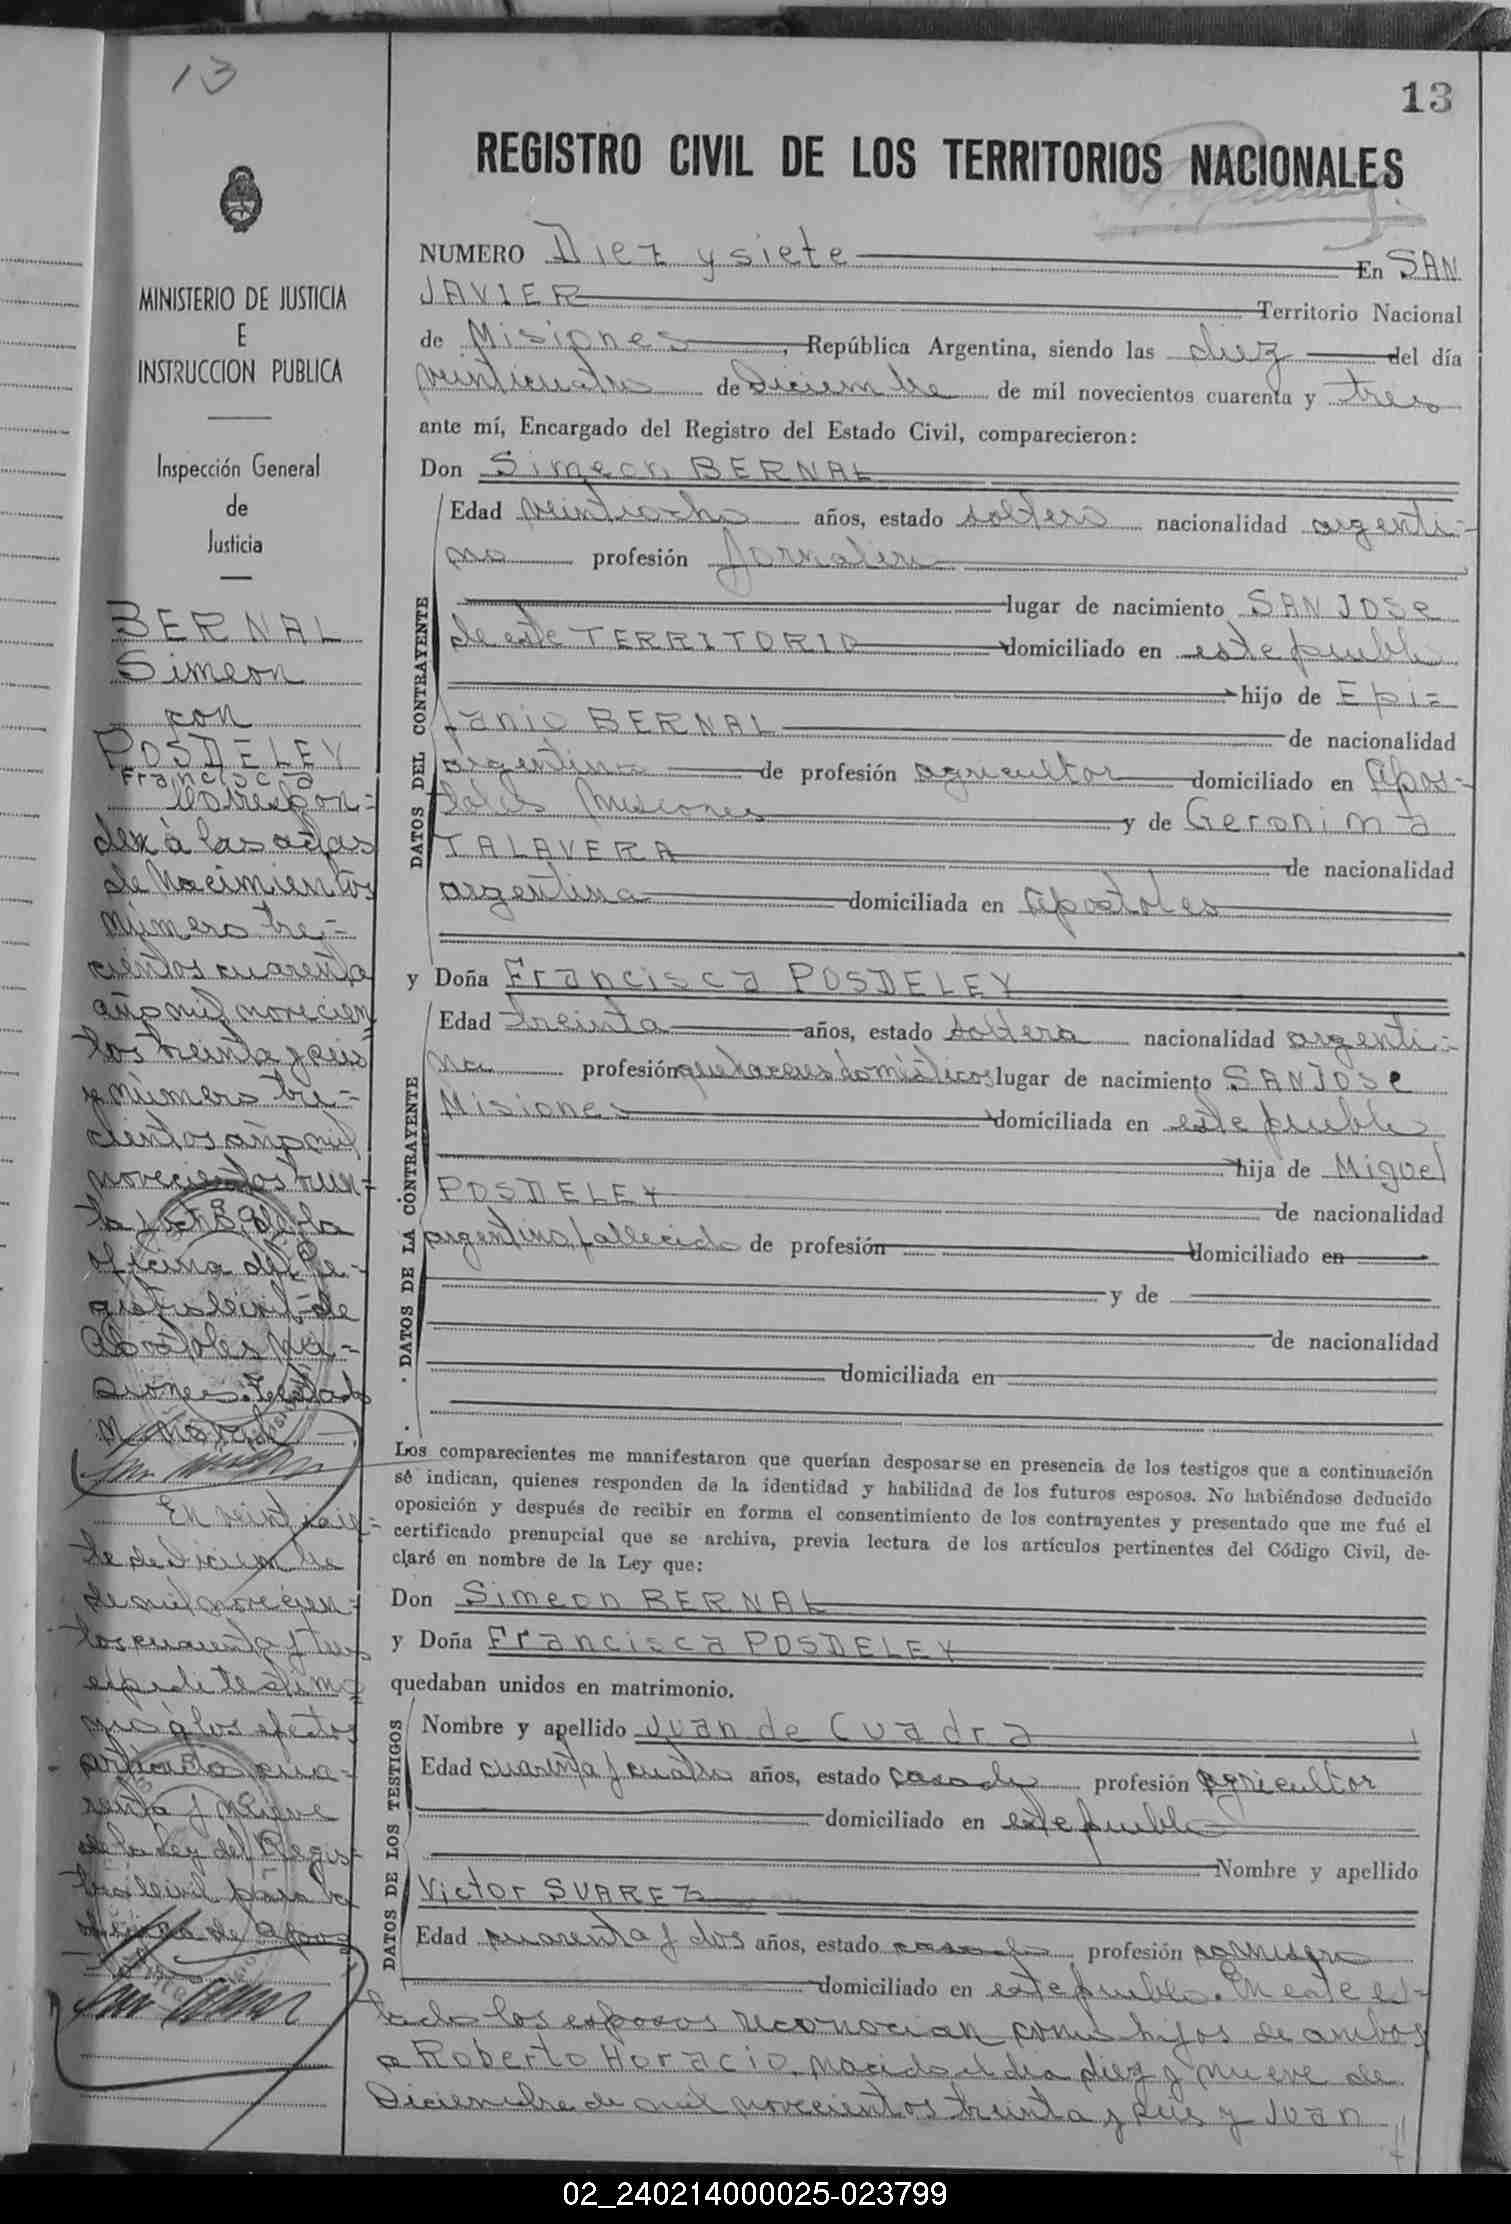 13
13
REGISTRO CIVIL DE LOS TERRITORIOS NACIONALES
MINISTERIO DE JUSTICIA
E
INSTRUCCION PUBLICA
Inspección General
de
Justicia
BERNAL
Simeon
con
POSDELEY
Francisca
Correspon=
den à las actas
de Nacimientos
número tre-
cientos cuarenta
año mil novecien
tos treinta y seis
y número tre-
cientos año mil
novecientos trein=
ta y de la
oficina del Re-
gistro Civil de
Apostoles Mi-
siones. Testado
En veintisie=
te de Diciembre
de mil novecien=
tos cuarenta y tres
expedi testimo
nio a los efectos
articulo cua-
renta y nueve
de la Ley del Regis-
tro Civil para la
oficina de Apos
NUMERO Diez y siete En SAN
JAVIER Territorio Nacional
de Misiones, República Argentina, siendo las diez del día
veinticuatro de Diciembre de mil novecientos cuarenta y tres
ante mí, Encargado del Registro del Estado Civil, comparecieron:
Don Simeon BERNAL
DATOS DEL CONTRAYENTE
Edad veintiocho años, estado soltero nacionalidad argenti=
no profesión Jornalero
lugar de nacimiento SAN JOSE
de este TERRITORIO domiciliado en este pueblo
hijo de Epi=
fanio BERNAL de nacionalidad
argentina de profesión agricultor domiciliado en Apos-
toles Misiones y de Geronima
TALAVERA de nacionalidad
argentina domiciliada en Apostoles
y Doña Francisca POSDELEY
DATOS DE LA CONTRAYENTE
Edad treinta años, estado soltera nacionalidad argenti=
na profesión quehaceres domésticos lugar de nacimiento SAN JOSE
Misiones domiciliada en este pueblo
hija de Miguel
POSDELEY de nacionalidad
argentino fallecido de profesión domiciliado en
y de
de nacionalidad
domiciliada en
Los comparecientes me manifestaron que querían desposarse en presencia de los testigos que a continuación
se indican, quienes responden de la identidad y habilidad de los futuros esposos. No habiéndose deducido
oposición y después de recibir en forma el consentimiento de los contrayentes y presentado que me fué el
certificado prenupcial que se archiva, previa lectura de los artículos pertinentes del Código Civil, de-
claré en nombre de la Ley que:
Don Simeon BERNAL
y Doña Francisca POSDELEY
quedaban unidos en matrimonio.
DATOS DE LOS TESTIGOS
Nombre y apellido Juan de Cuadra
Edad cuarenta y cuatro años, estado casado profesión agricultor
domiciliado en este pueblo
Nombre y apellido
Victor SUAREZ
Edad cuarenta y dos años, estado casado profesión
domiciliado en este pueblo. En este es-
tado los esposos reconocian como hijos de ambos
a Roberto Horacio, nacido el dia diez y nueve de
Diciembre de mil novecientos treinta y seis y Juan
02_240214000025-023799